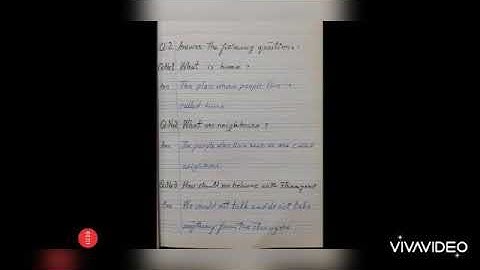 Q:2 Answer the following questions.
Q:No1 What is home?
Ans The place where people live is
called home.
Q:No2 What are neighbours?
Ans The people who live near us are called
neighbours.
Q:No3 How should we behave with strangers
Ans We should not talk and do not take
anything from the strangers
VIVAVIDEO